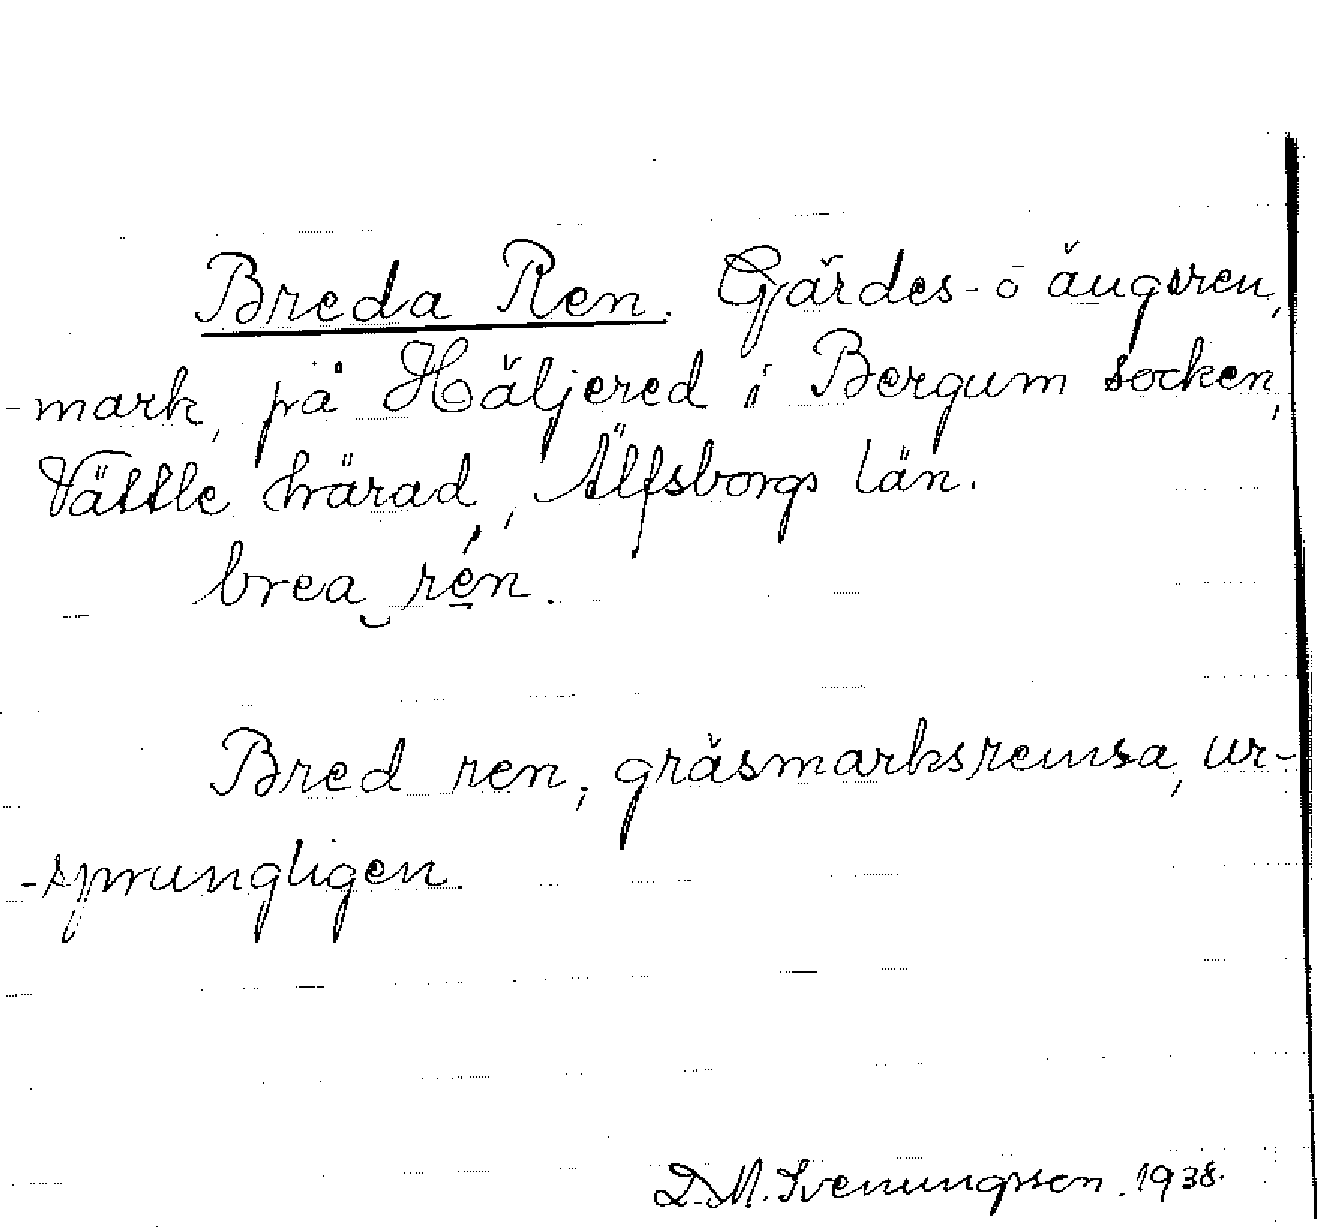 Breda Ren. Gärdes- o ängsren,
-mark, på Häljered i Bergum socken,
Vättle härad, Älfsborgs län.
brea‿rén.
Bred ren, gräsmarksremsa, ur-
-sprungligen.
D.M. Svenungsson. 1938.